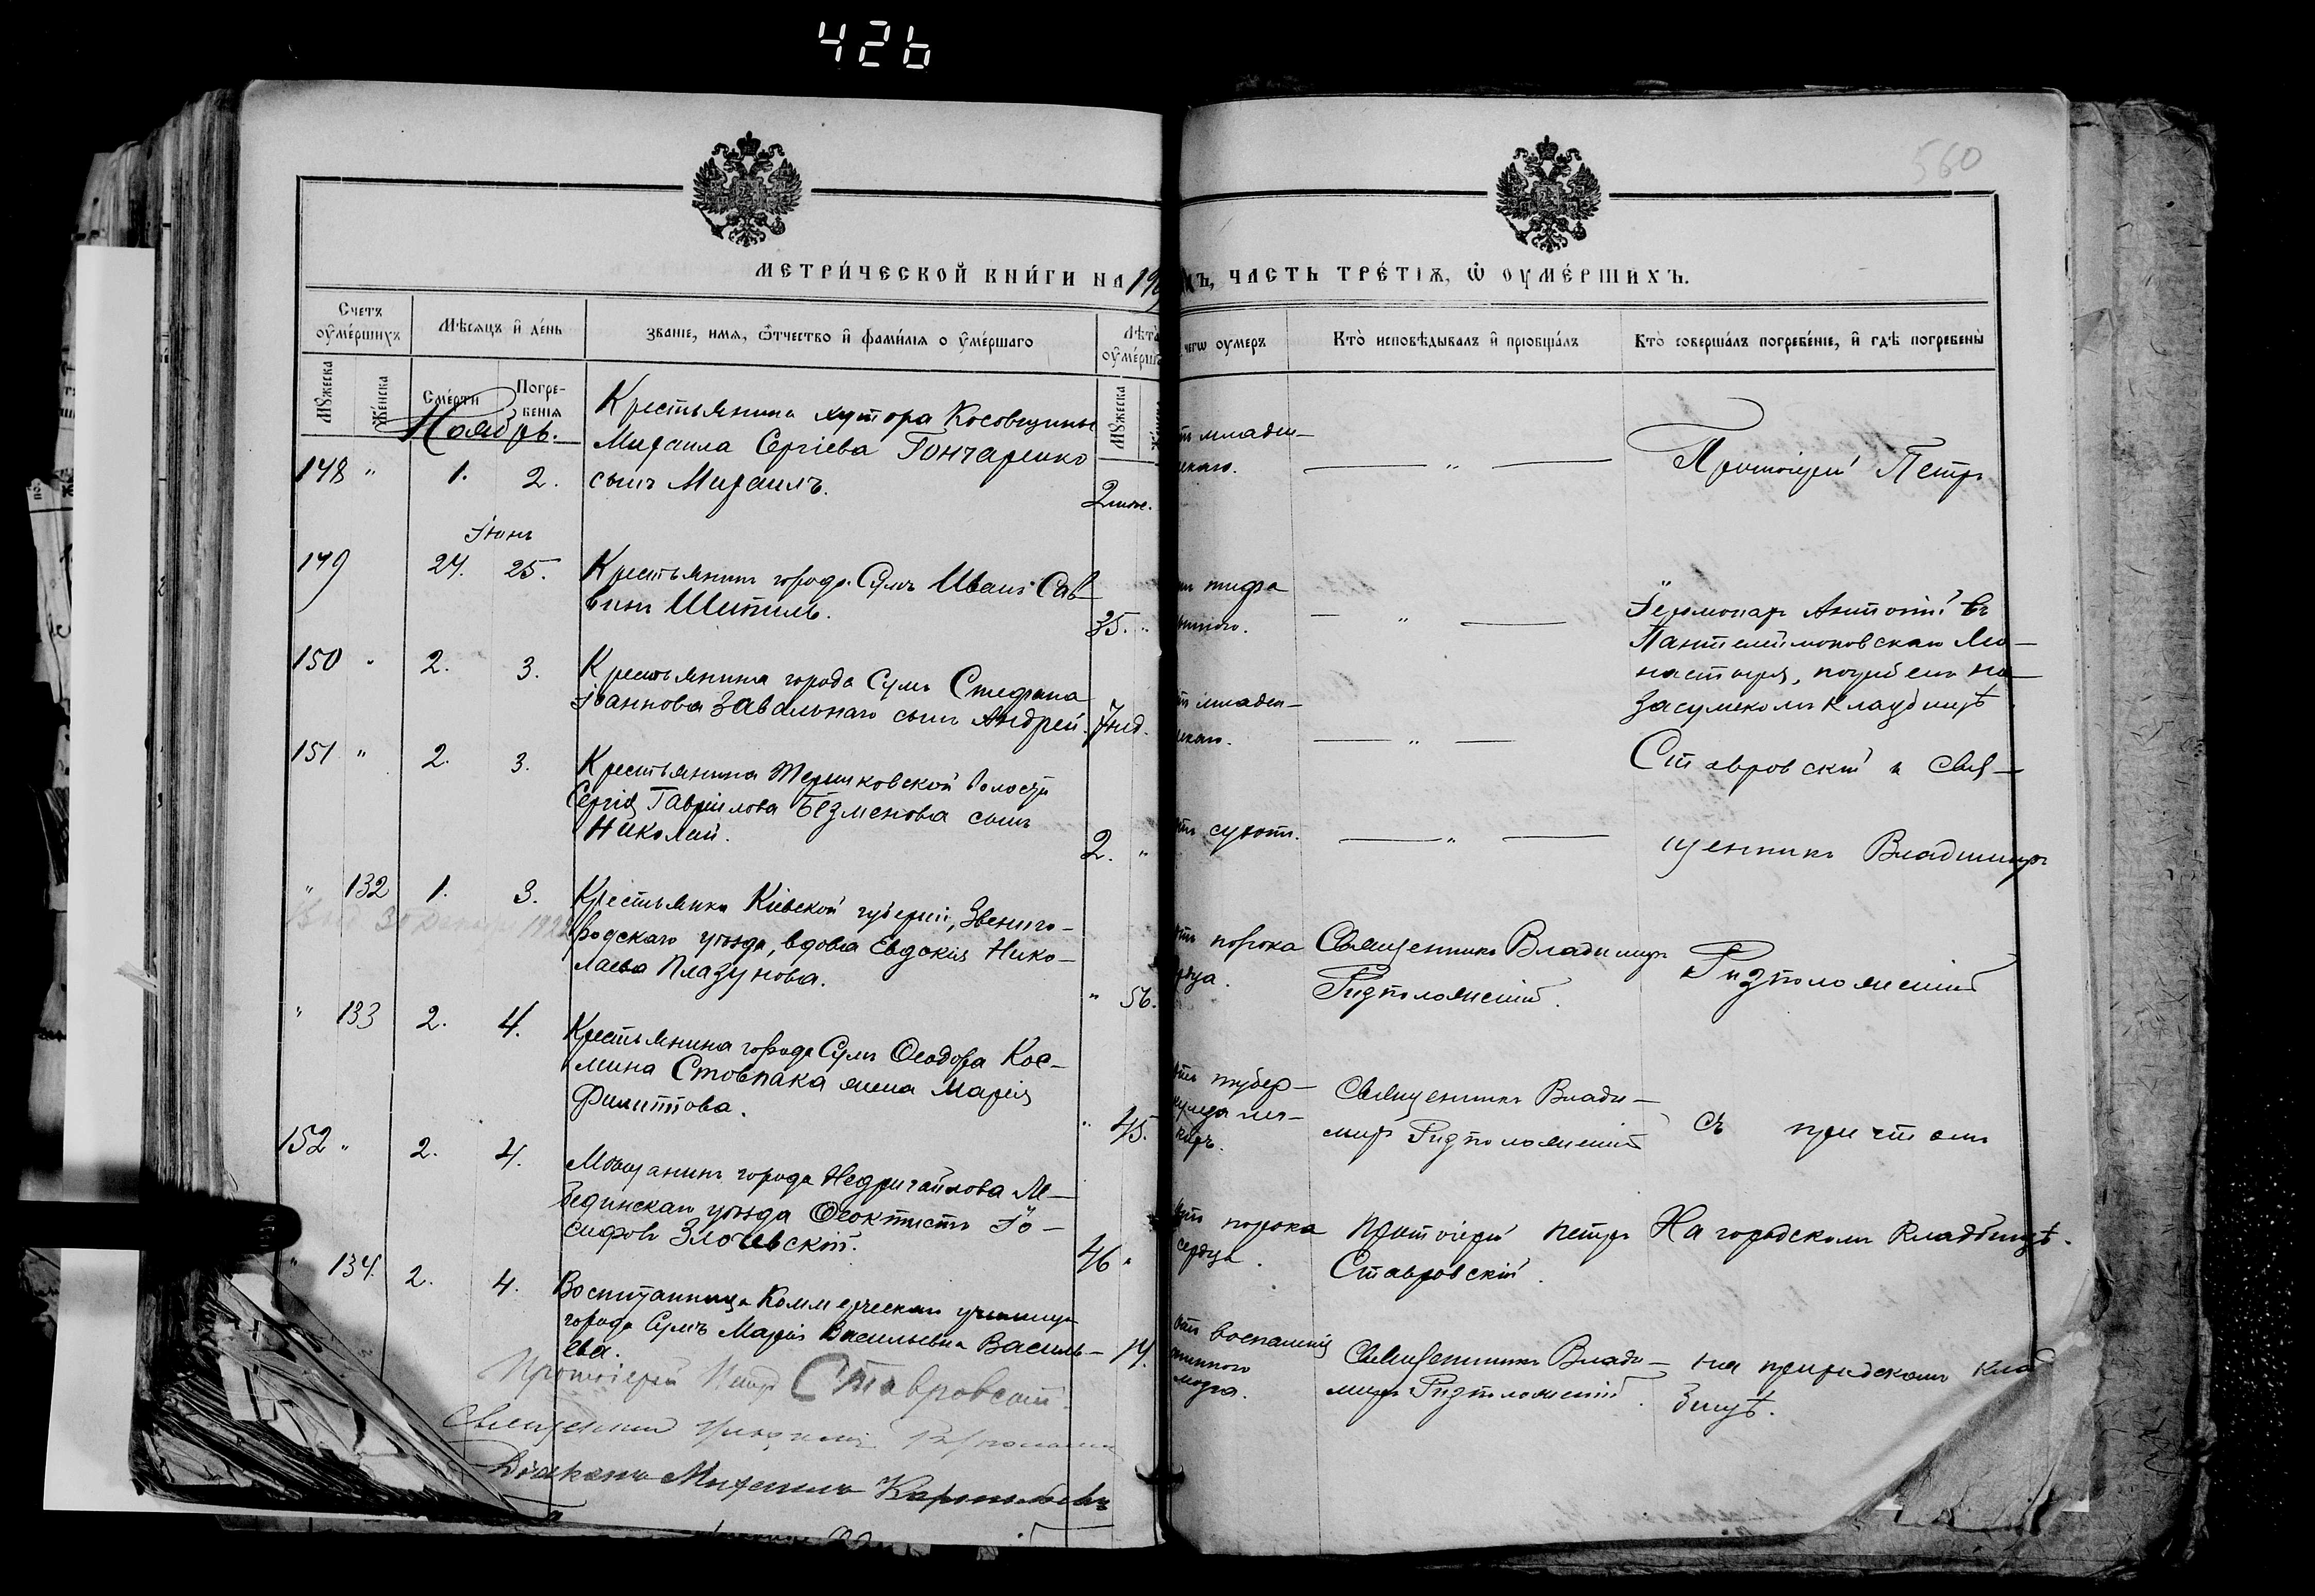 426
560
МЕТРИ́ЧЕСКОЙ КНИ́ГИ НА 19
Ъ, ЧАСТЬ ТРЕ́ТІѦ, Ѽ ОУМЕ́РШИХЪ.
Счетъ оуме́ршихъ
Мѣсяцъ и҆ де́нь
Званіе, имя, ѿтчество и҆ фами́лія о у҆ме́ршаго
Лѣта
оуме́рш
чегѡ оумеръ
Кто̀ исповѣдывалъ и҆ пріобща́лъ
Кто̀ соверша́лъ погребе́ніе, и҆ гдѣ погребены̀
Мꙋжеска
Же́нска
Сме́рти
Погре-
бенія
Мꙋжеска
Ноябрь.
148 " 1. 2.
Крестьянина хутора Косовщины
Михаила Сергіева Гончаренко
сынъ Михаилъ.
2 мѣс.
младен-
ческаго.
Протоіерей Петръ
Іюнь
149 24. 25.
Крестьянинъ города Сумъ Иванъ Сав-
винъ Шепиль.
35. "
тифа
Іеромонахъ Антоній въ
Пантелеимоновскаго Мо-
настыря, погребенъ на
Засумскомъ кладбищѣ
150 " 2. 3.
Крестьянина города Сумъ Стефана
Іоаннова Завальнаго сынъ Андрей.
7 нед.
младен-
ческаго.
Ставровскій и Свя-
151 " 2. 3.
Крестьянина Терешковской волости
Сергія Гавріилова Безменова сынъ
Николай.
2. "
сухот.
щенникъ Владиміръ
" 132 1. 3.
Крестьянка Кіевской губерніи, Звениго-
родскаго уѣзда, вдова Евдокія Нико-
лаева Плазунова.
" 56.
отъ порока
сердца.
Священникъ Владиміръ
Ризположенскій.
Ризположенскій
" 133 2. 4.
Крестьянина города Сумъ Ѳеодора Кос-
мина Стовпака жена Марія
Филиппова.
" 45.
отъ тубер-
кулеза лег-
кихъ.
Священникъ Влади-
міръ Ризположенскій
съ причтомъ
152 " 2. 4.
Мѣщанинъ города Недригайлова Ле-
бединскаго уѣзда Ѳеоктистъ Іо-
сифовъ Злочевскій.
46 "
отъ порока
сердца.
Протоіерей Петръ
Ставровскій.
На городскомъ кладбищѣ.
" 134. 2. 4.
Воспитанница Коммерческаго училища
города Сумъ Марія Васильевна Василь-
ева.
14.
отъ воспаленія
мозга.
Священникъ Влади-
міръ Ризположенскій.
на приходскомъ клад
бищѣ.
Протоіерей Петръ Ставровскій
Священникъ
Діаконъ Михаилъ